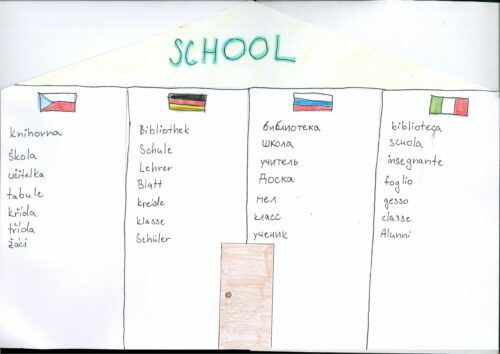 SCHOOL
Knihovna
škola
učitelka
tabule
křída
třída
žáci
Bibliothek
Schule
Lehrer
Blatt
kreide
klasse
Schüler
библиотека
школа
учитель
Доска
мел
класс
ученик
biblioteca
scuola
insegnante
foglio
gesso
classe
Alunni